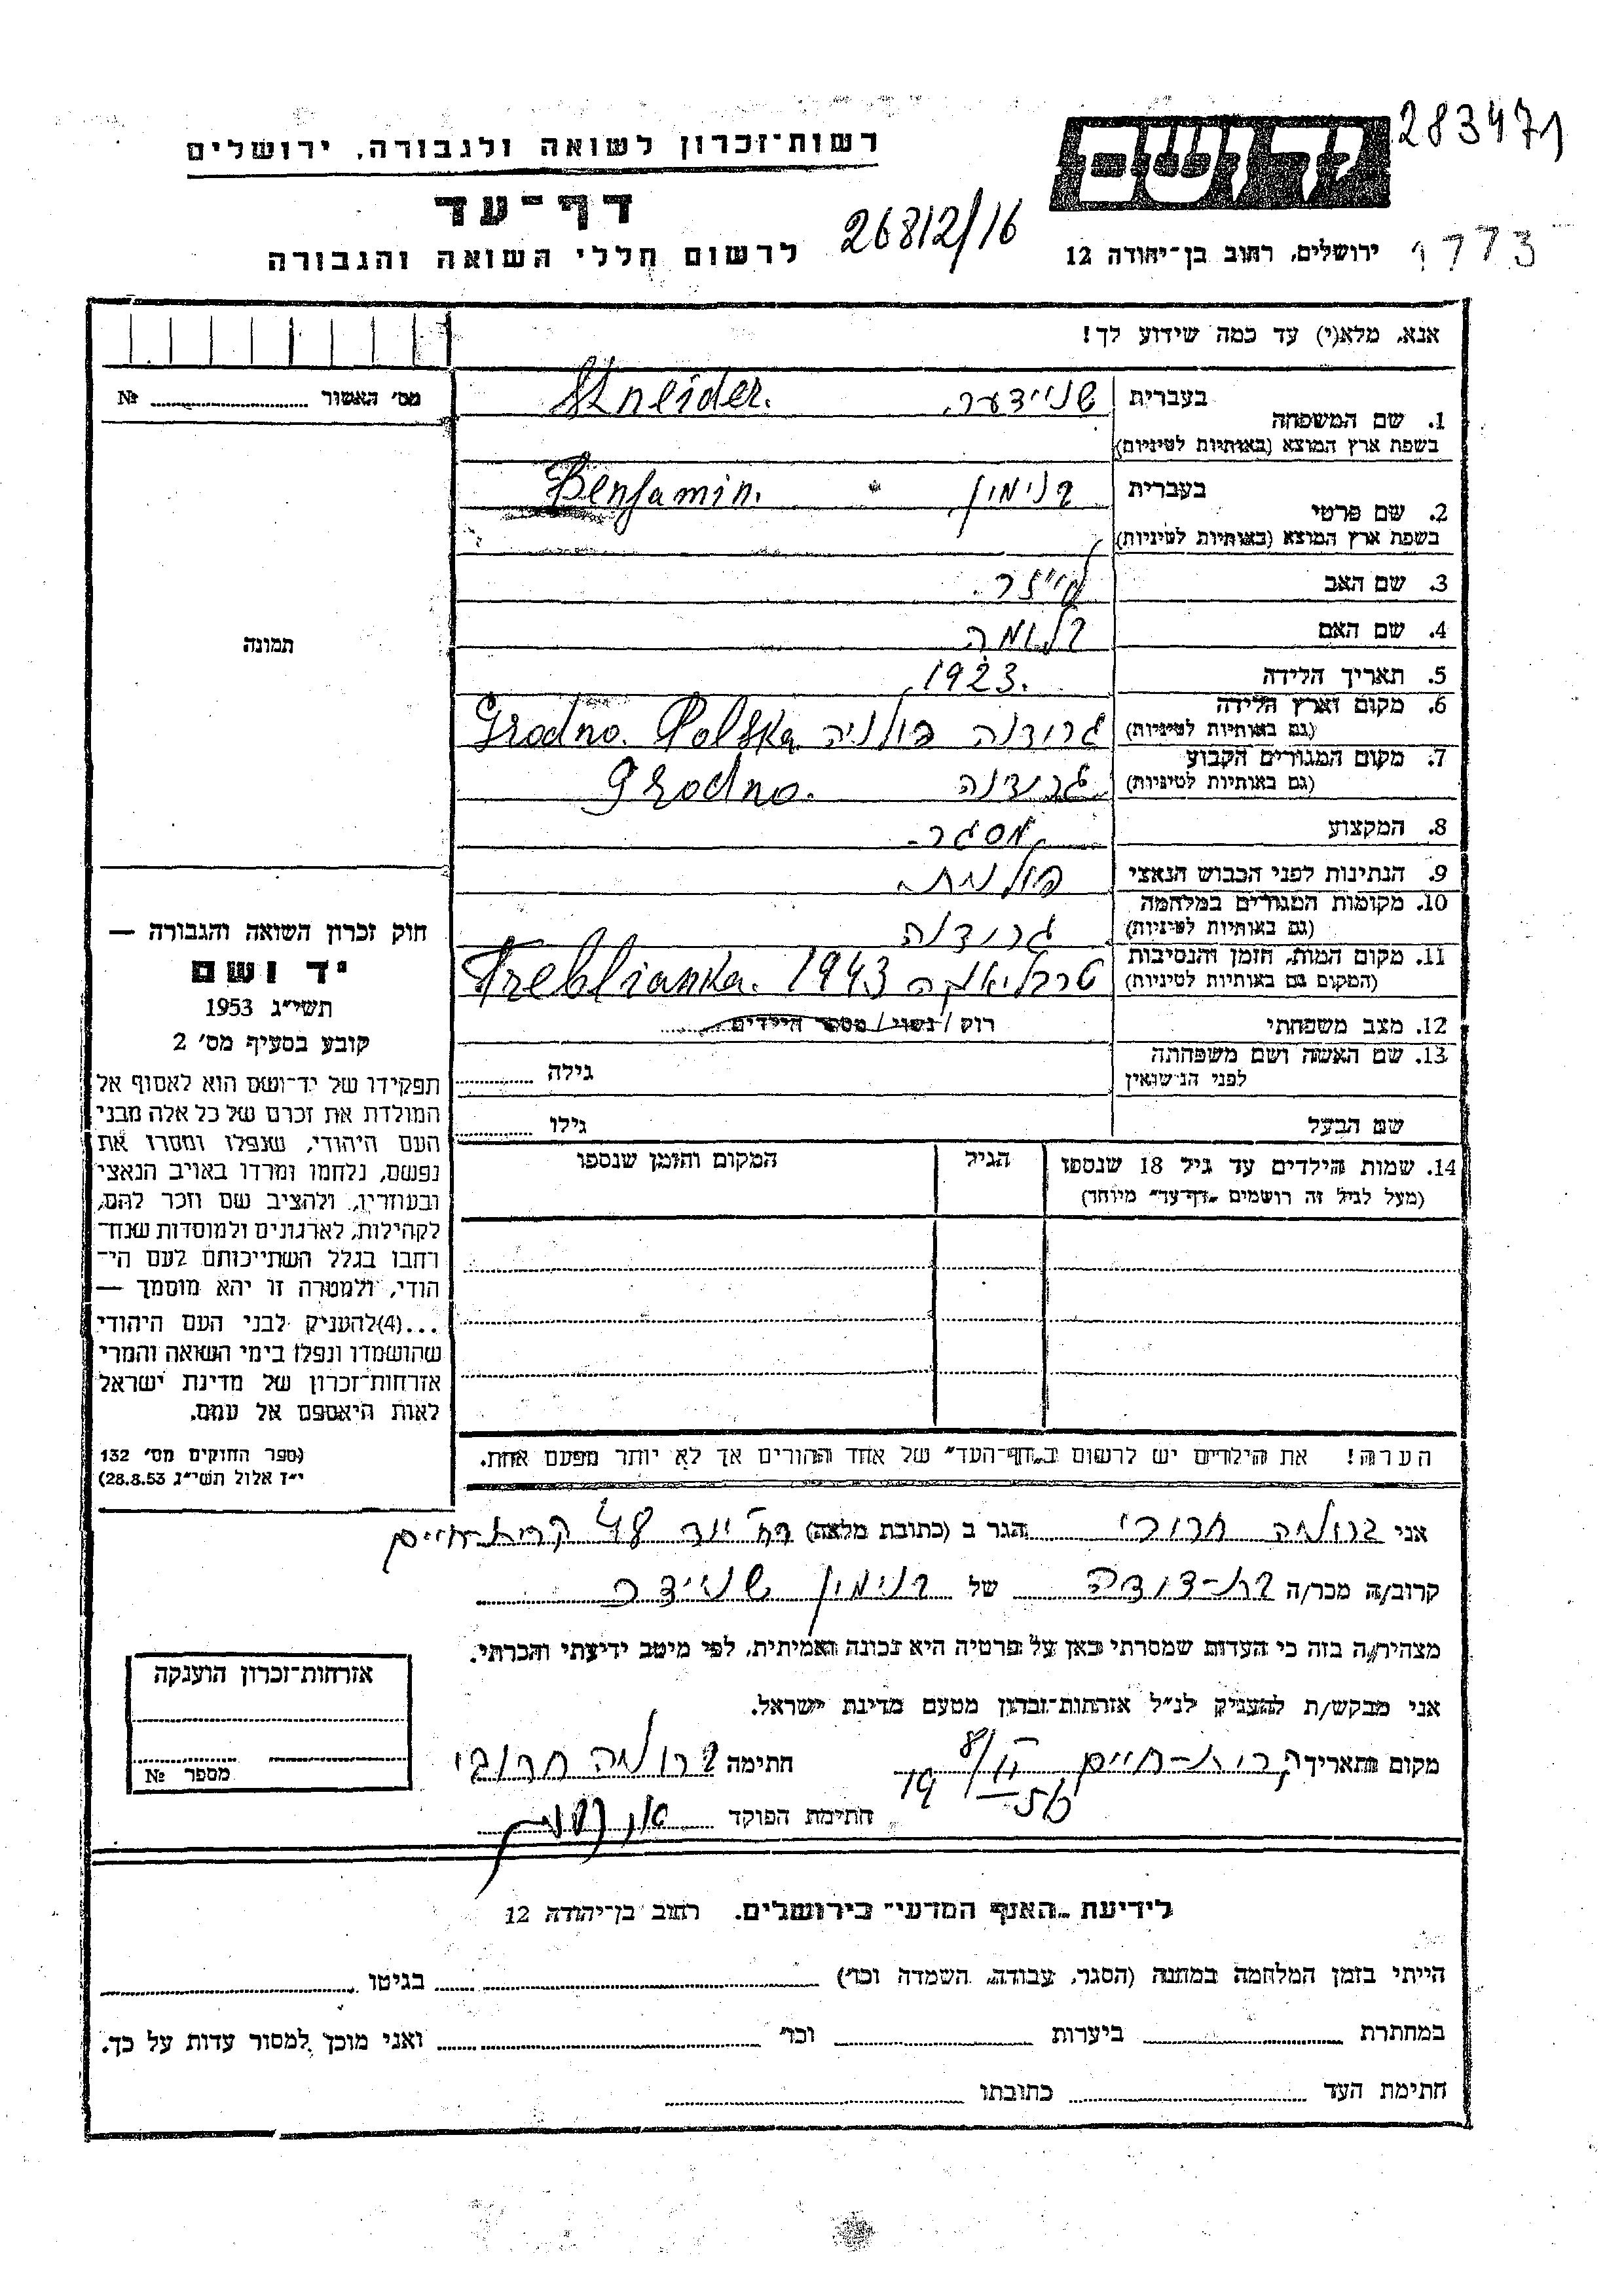 283471
רשות-זכרון לשואה ולגבורה, ירושלים
ידושם
דף-עד
26812/16
לרשום חללי השואה והגבורה
ירושלים, רחוב בן-יהודה 12
1773
אנא, מלא(י) עד כמה שידוע לך!
מס׳ האשור № 
1. שם המשפחה בעברית שניידער. Sneider.
בשפת ארץ המוצא (באותיות לטיניות)
2. שם פרטי בעברית בנימין Benjamin.
בשפת ארץ המוצא (באותיות לטיניות)
3. שם האב
4. שם האם
תמונה
5. תאריך הלידה 1923.
6. מקום וארץ הלידה גרודנה פולניה Grodno. Polska
(גם באותיות לטיניות)
7. מקום המגורים הקבוע גרודנה Grodno.
(גם באותיות לטיניות)
8. המקצוע מסגר
9. הנתינות לפני הכבוש הנאצי פולנית
10. מקומות המגורים במלחמה גרודנה
(גם באותיות לטיניות)
11. מקום המות, הזמן והנסיבות טרבליאנקה 1943 Treblianka.
(המקום גם באותיות לטיניות)
12. מצב משפחתי רוק / נשוי / מספר הילדים
13. שם האשה ושם משפחתה
לפני הנישואין
גילה
שם הבעל גילו
14. שמות הילדים עד גיל 18 שנספו הגיל המקום והזמן שנספו
(מעל לגיל זה רושמים „דף-עד״ מיוחד)
חוק זכרון השואה והגבורה —
יד ושם
תשי״ג 1953
קובע בסעיף מס׳ 2
תפקידו של יד-ושם הוא לאסוף אל
המולדת את זכרם של כל אלה מבני
העם היהודי, שנפלו ומסרו את
נפשם, נלחמו ומרדו באויב הנאצי
ובעוזריו, ולהציב שם וזכר להם,
לקהילות, לארגונים ולמוסדות שנח-
רבו בגלל השתייכותם לעם הי-
הודי, ולמטרה זו יהא מוסמך —
...(4)להעניק לבני העם היהודי
שהושמדו ונפלו בימי השואה והמרי
אזרחות-זכרון של מדינת ישראל
לאות היאספם אל עמם.
(ספר החוקים מס׳ 132
י״ז אלול תשי״ג 28.8.53)
הערה! את הילדים יש לרשום ב„דף-העד״ של אחד ההורים אך לא יותר מפעם אחת.
אני ברומה חרובי הגר ב (כתובת מלאה) 48 קרית-חיים
קרוב/ה מכר/ה בת-דודה של בנימין שניידר
מצהיר/ה בזה כי העדות שמסרתי כאן על פרטיה היא נכונה ואמיתית, לפי מיטב ידיעתי והכרתי.
אני מבקש/ת להעניק לנ״ל אזרחות-זכרון מטעם מדינת ישראל.
אזרחות-זכרון הוענקה
מספר №
מקום ותאריך קרית-חיים 8/II 1956 חתימה ברומה חרובי
חתימת הפוקד
לידיעת „האגף המדעי״ בירושלים, רחוב בן-יהודה 12
הייתי בזמן המלחמה במחנה (הסגר, עבודה, השמדה וכו׳) בגיטו
במחתרת ביערות וכו׳ ואני מוכן למסור עדות על כך.
חתימת העד כתובתו